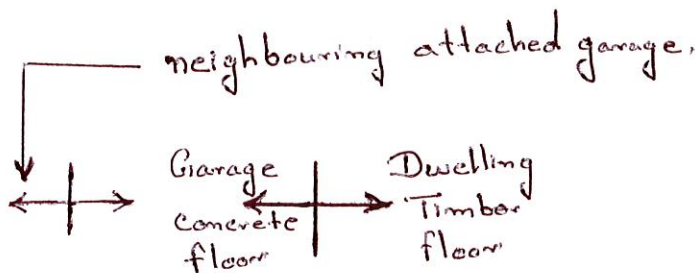 neighbouring attached garage.
Garage
concrete
floor
Dwelling
Timber
floor